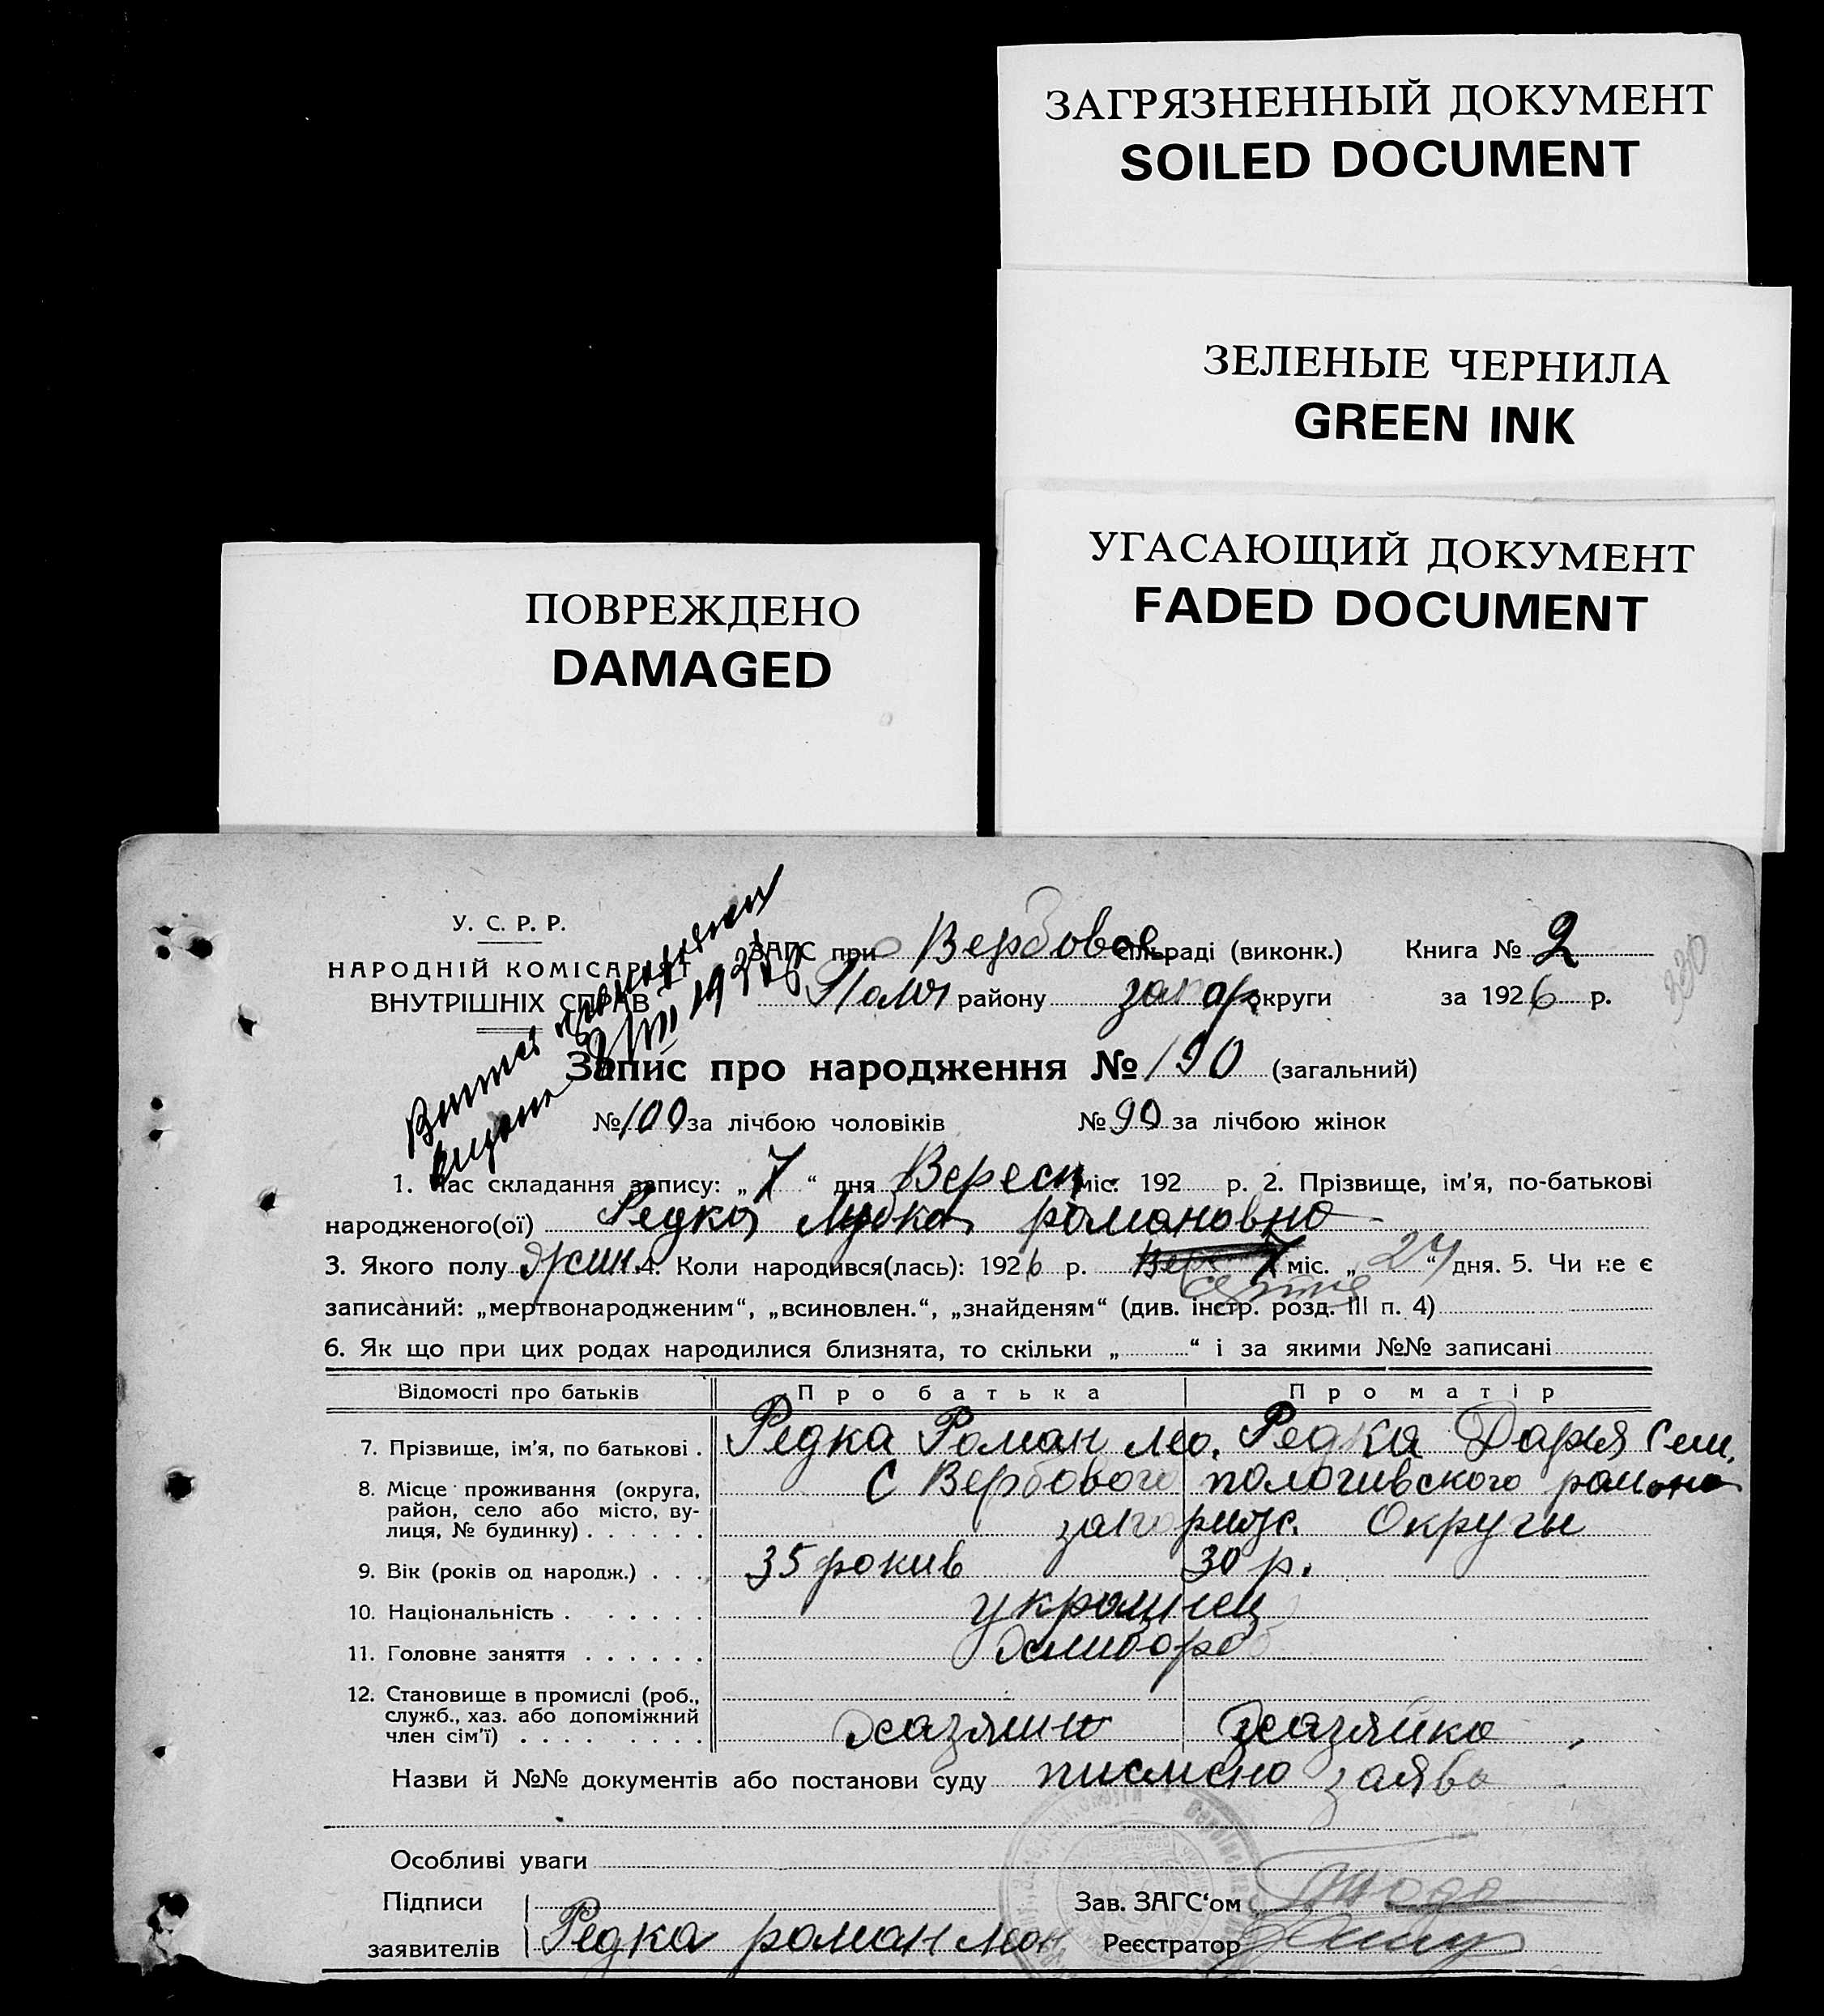 ЗАГРЯЗНЕННЫЙ ДОКУМЕНТ
SOILED DOCUMENT
ЗЕЛЕНЫЕ ЧЕРНИЛА
GREEN INK
УГАСАЮЩИЙ ДОКУМЕНТ
FADED DOCUMENT
ПОВРЕЖДЕНО
DAMAGED
У. С. Р. Р.
НАРОДНІЙ КОМІСАРІЯТ
ВНУТРІШНІХ СПРАВ
ЗАГС при Вербовое сільраді (виконк.) Книга № 2
району округи за 1926 р.
330
Запис про народження № 190 (загальний)
№ 100 за лічбою чоловіків № 90 за лічбою жінок
1. Час складання запису: „ 7 “ дня Вересн міс. 192 р. 2. Прізвище, ім'я, по-батькові
народженого(ої) Редка Любка романовна
3. Якого полу жин. 4. Коли народився(лась): 1926 р. міс. „ 24 “ дня. 5. Чи не є
записаний: „мертвонародженим“, „всиновлен.“, „знайденям“ (див. інстр. розд. III п. 4)
6. Як що при цих родах народилися близнята, то скільки „ “ і за якими №№ записані
Відомості про батьків Про батька Про матір
7. Прізвище, ім'я, по батькові . Редка Роман Лео. Редка Дария Сем.
8. Місце проживання (округа, район, село або місто, вулиця, № будинку) С Вербового пологивского району
запориж. Округи
9. Вік (років од народж.) 35 рокив 30 р.
10. Національність украинец
11. Головне заняття хлибороб
12. Становище в промислі (роб., служб., хаз. або допоміжний член сім'ї) хазяин хазяйка
Назви й №№ документів або постанови суду писмено заява
Особливі уваги
Підписи Зав. ЗАГС'ом
заявителів Редка роман Леон Реєстратор